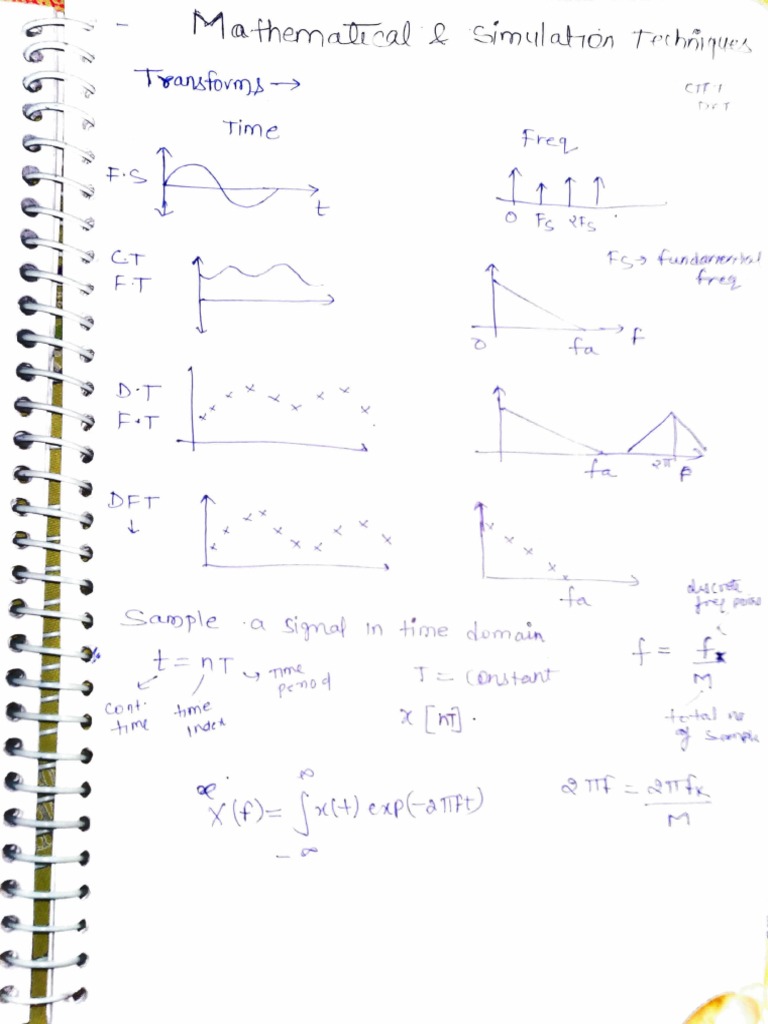 - Mathematical & Simulation Techniques
Transforms →
CTFT
DFT
Time
Freq
F.S
t
0 Fs 2Fs
Fs → fundamental
freq
C.T
F.T
0 fa f
D.T
F.T
fa 2π f
DFT
↓
fa
Sample a signal in time domain
t = nT → Time
period
cont.
time
time
index
T = constant
x[nT].
discrete
freq
f = fk/M
total no
of sample
X(f) = ∫_{-∞}^{∞} x(t) exp(-2πft)
2πf = 2πfk/M